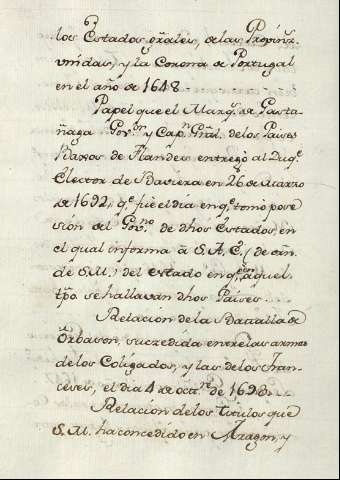 los Estados grãles, de las Provinz.
unidas, y la Corona de Portugal
en el año de 1648.
Papel que el Marq.s de Gasta-
ñaga Gov.or y Cap.n Grãl. de los Paises
Baxos de Flandes entregó al Duq.e
Elector de Baviera en 26 de Marzo
de 1692, q.e fue el dia en q.e tomó pose
sión del Gov.no de dhos Estados, en
el qual informa à S.A.E. (de orn.
de S.M.) del estado en q.e con aquel
tpo se hallavan dhos Países.
Relación de la Batalla de
Orbason, sucedida entre las armas
de los Coligados, y las de los Fran-
ceses, el dia 4 de oct.re de 1693.
Relación de los titulos que
S.M. ha concedido en Aragon, y